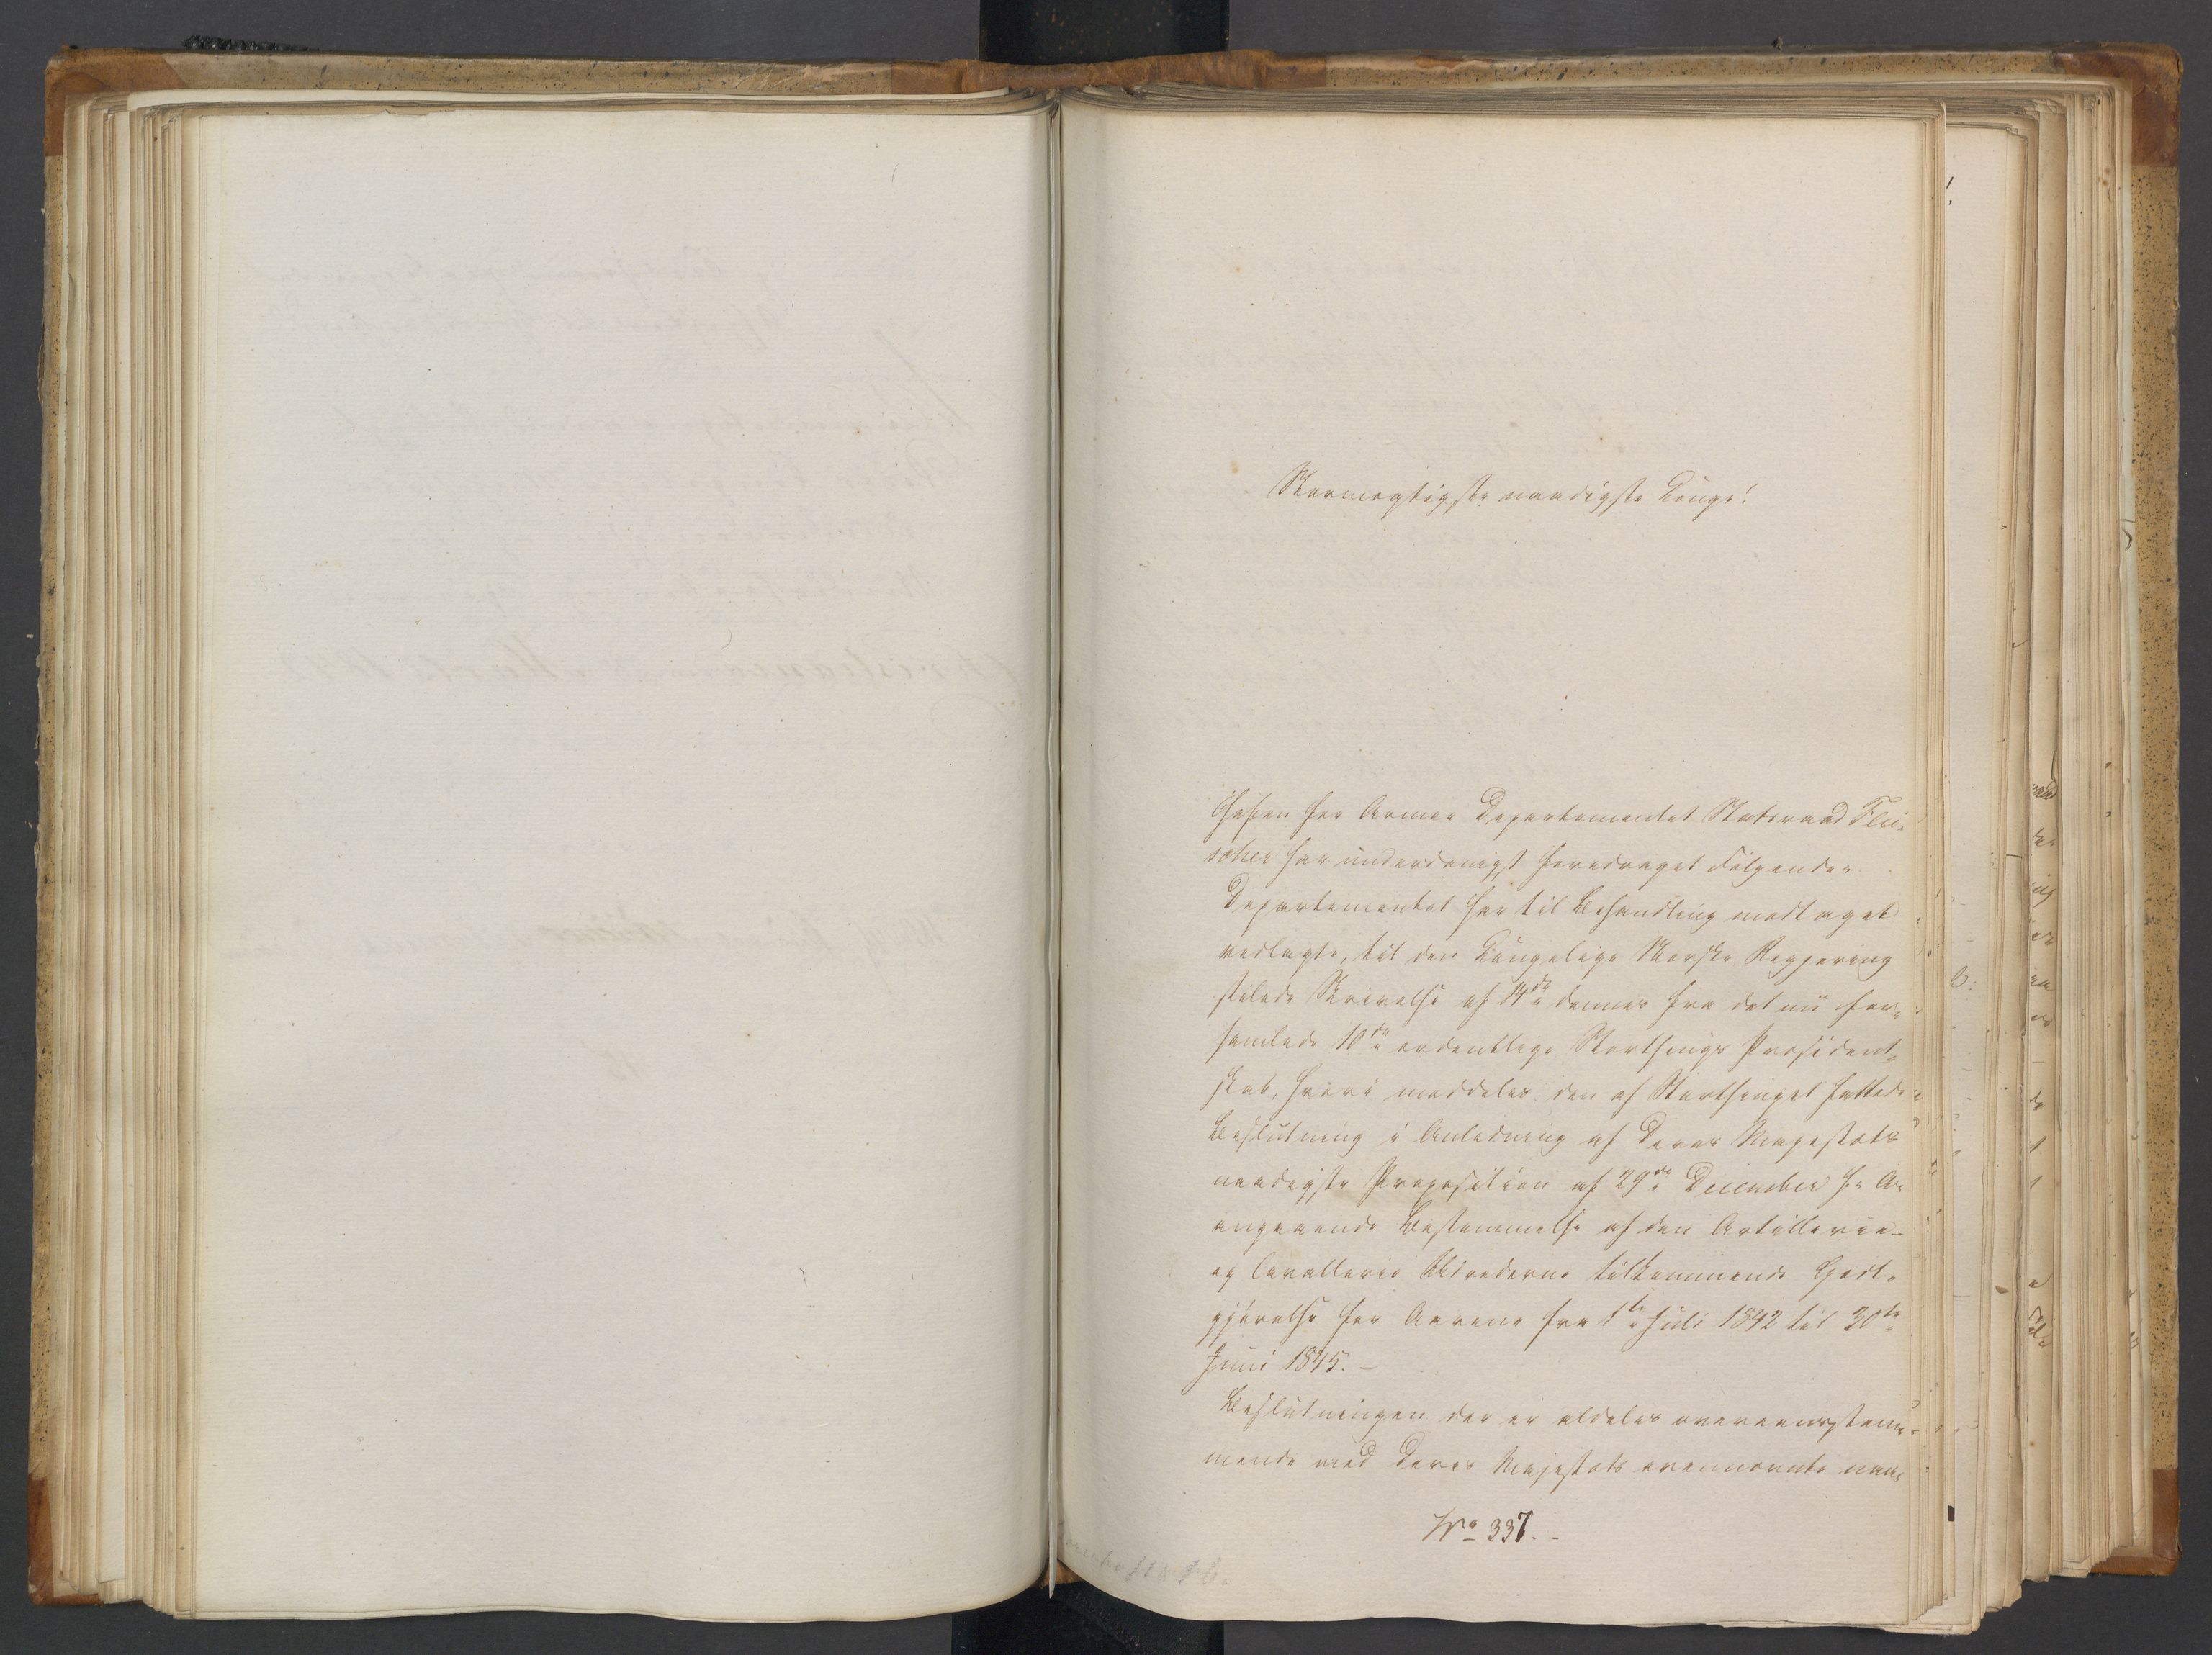 Stormægtigste naadigste Konge!
Chefen for Armee Departementet Statsraad Flei-
scher har underdanigst foredraget Følgende:
Departementet har til Behandling modtaget
vedlagte, til den Kongelige Norske Regjering
stilede Skrivelse af 14de dennes fra det nu for-
samlede 10de ordentlige Storthings Præsident-
skab, hvori meddeles den af Storthinget fattede
Beslutning i Anledning af Deres Majestæts
naadigste Proposition af 29de December f. A.
angaaende Bestemmelse af den Artillerie-
og Cavallerie Udrederne tilkommende Godt-
gjørelse for Aarene fra 1te Juli 1842 til 30te
Juni 1845.-
Beslutningen der er aldeles overeensstem-
mende med Deres Majestæts ovennævnte naa-
No 337.-